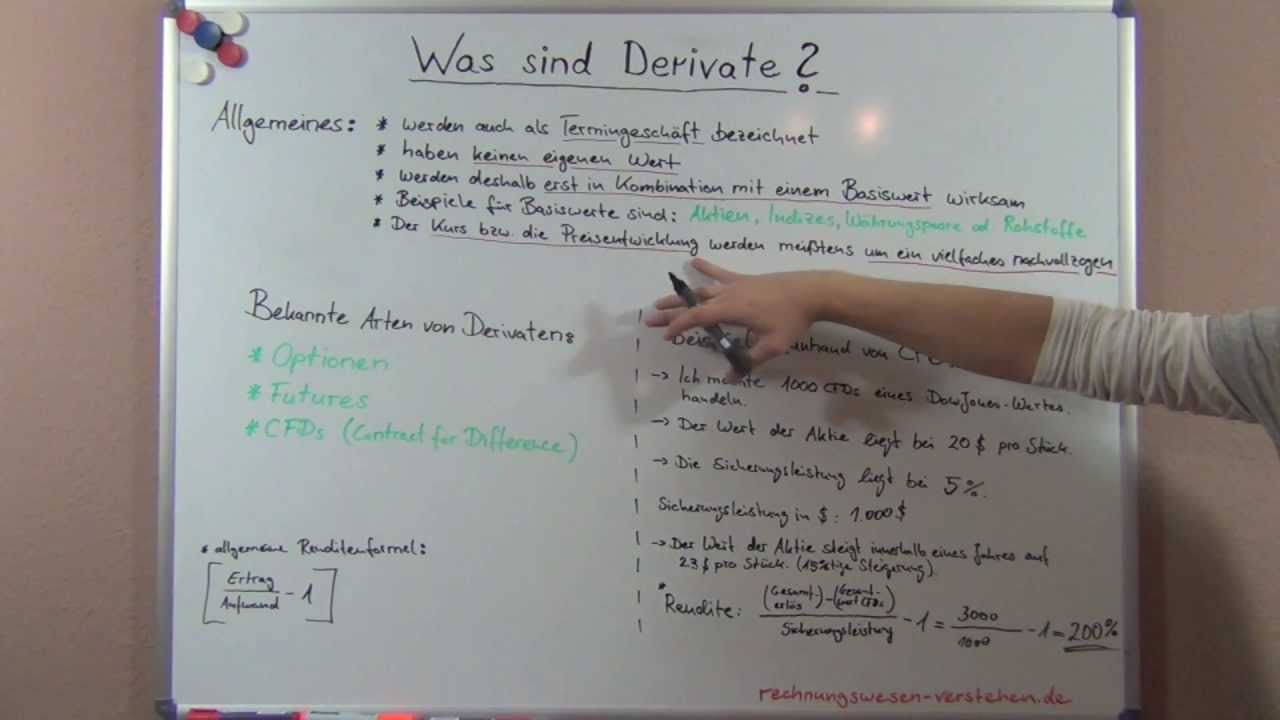 Was sind Derivate?
Allgemeines:
* werden auch als Termingeschäft bezeichnet
* haben keinen eigenen Wert
* werden deshalb erst in Kombination mit einem Basiswert wirksam
* Beispiele für Basiswerte sind: Aktien, Indizes, Währungspaare od. Rohstoffe
* Der Kurs bzw. die Preisentwicklung werden meißtens um ein vielfaches nachvollzogen
Bekannte Arten von Derivaten:
* Optionen
* Futures
* CFDs (Contract for Difference)
* allgemeine Renditenformel:
[Ertrag
Aufwand - 1]
von
→ Ich 1000 CFDs eines DowJones-Wertes
handeln.
→ Der Wert der Aktie liegt bei 20 $ pro Stück.
→ Die Sicherungsleistung liegt bei 5%.
Sicherungsleistung in $: 1.000 $
→ Der Wert der Aktie steigt innerhalb eines Jahres auf
23 $ pro Stück. (15%tige Steigerung).
* Rendite: (Gesamterlös) - (Gesamt- CFDs)
Sicherungsleistung - 1 = 3000
1000 - 1 = 200%
rechnungswesen-verstehen.de